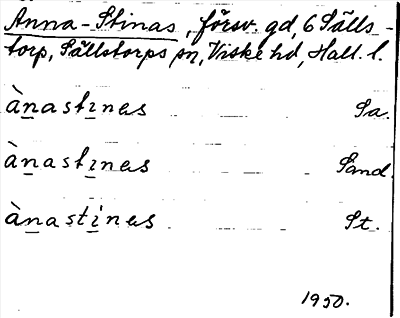 Anna-Stinas, försv. gd, 6 Sälls-
torp, Sällstorps sn, Viske hd, Hall. l.
ànastinas Sa.
ànastinas Sand.
ànastinas St.
1950.